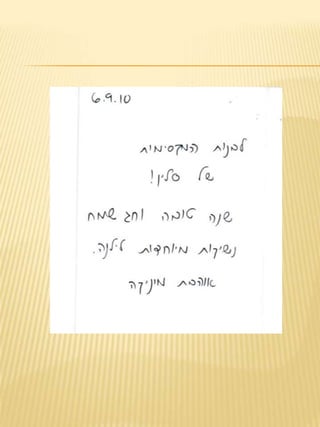 6.9.10
לבנות המקסימות
של סלין!
שנה טובה וחג שמח
נשיקות מיוחדות לילנה.
אוהבת מיניקה